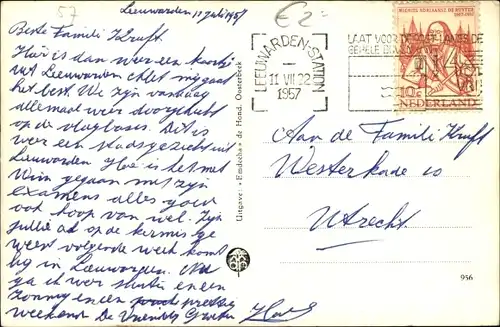 57
€2=
Leeuwarden 10 juli 1957
Beste Familie Kruft.
Hier is dan weer een kaartje
uit Leeuwarden. Met mij gaat
het best. We zijn vandaag
allemaal weer
op de vlagbaers. Dit is
weer een stadsgezicht uit
Leeuwarden. Hoe is het met
Wim gegaan met zijn
examens alles goed
ook hoop van wel. Zijn
jullie al op de kermis ge
weest volgende week komt
hij in Leeuwarden. Nu
ga ik weer sluiten en een
zonnig en een prettig
weekend De Vriendel Groeten
Uitgave: «Emdeeha» de Hond, Oosterbeek
LEEUWARDEN-STATION
11 VII.22
1957
LAAT VOOR DE POST LANGS DE
MICHIEL ADRIAANSZ DE RUYTER
1607-1957
10c
NEDERLAND
Aan de Familie Kruft
Westerkade 10
Utrecht
956